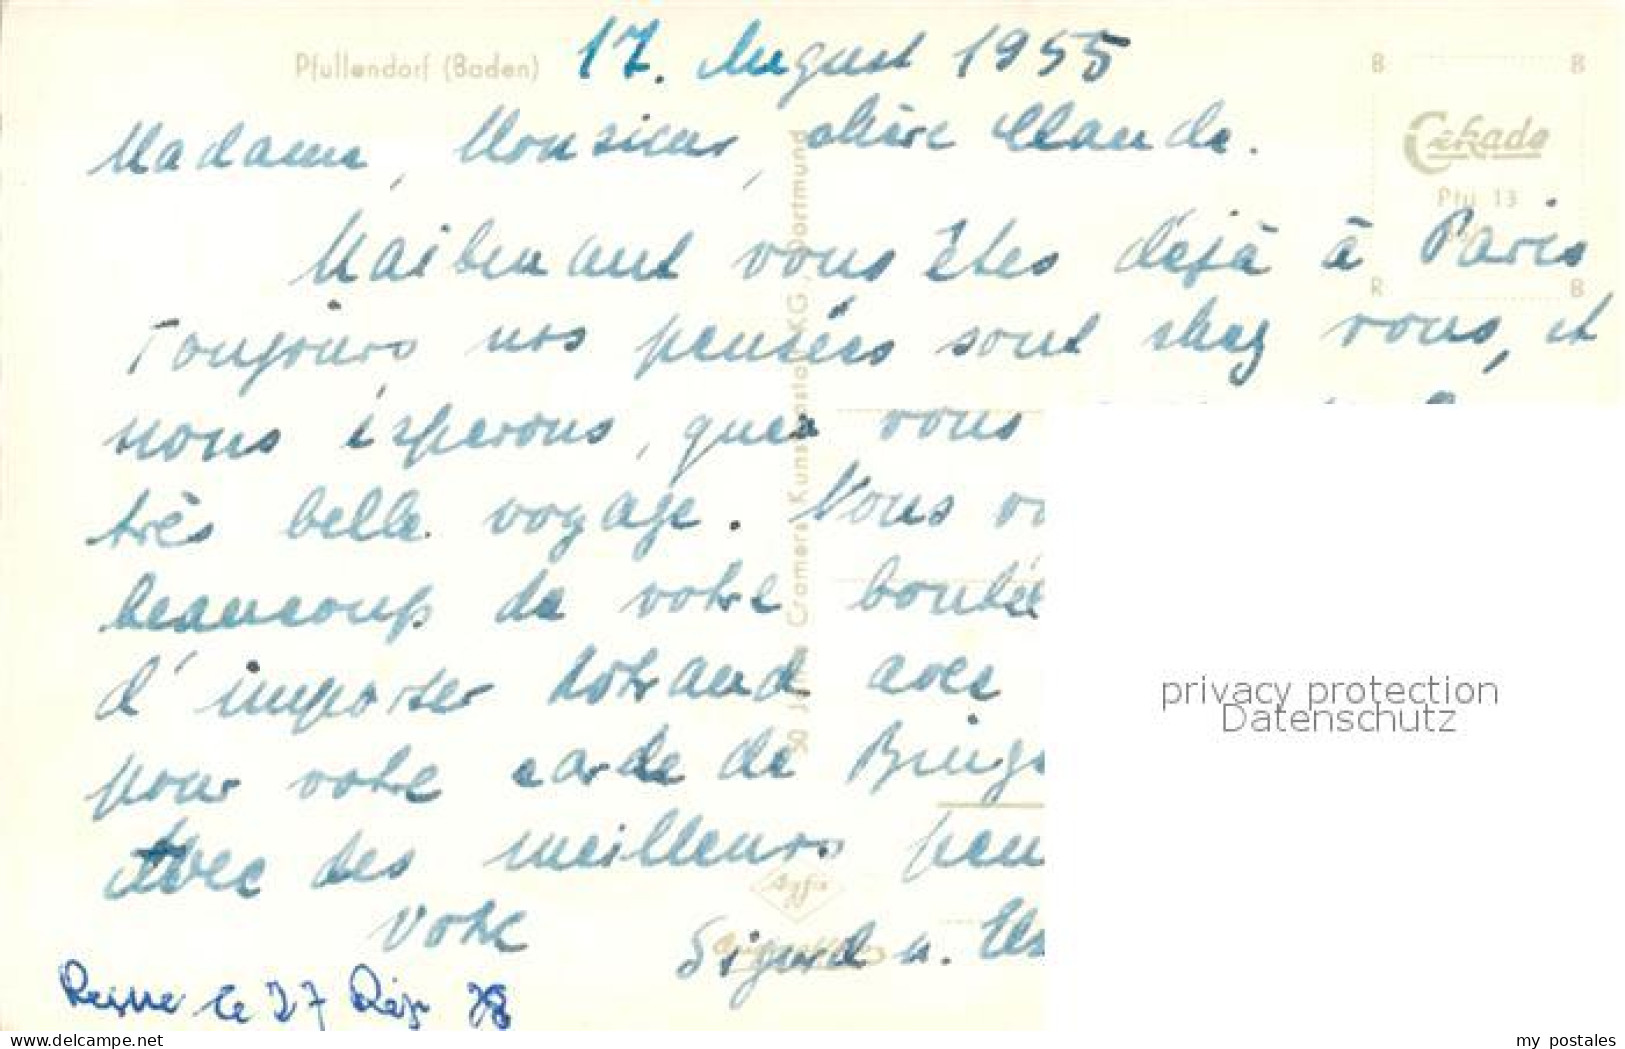 Pfullendorf (Baden)
17. August 1955
B B
Cekade
Pfu 13
R B
Madame, Monsieur, chère Claude.
Maibenant vous êtes déjà à Paris
Toujours nos pensées sont chez vous, et
nous esperons, que vous
très belle voyage. Nous
beaucoup de votre bontée
d'importer Rotraud avec
pour votre carde de
Avec des meilleurs
Votre
Sigurd u.
le 27 Rép 28
50 Jahre Cramers Kunstanstalt KG., Dortmund
Agfa
privacy protection
Datenschutz
delcampe.net
my_postales